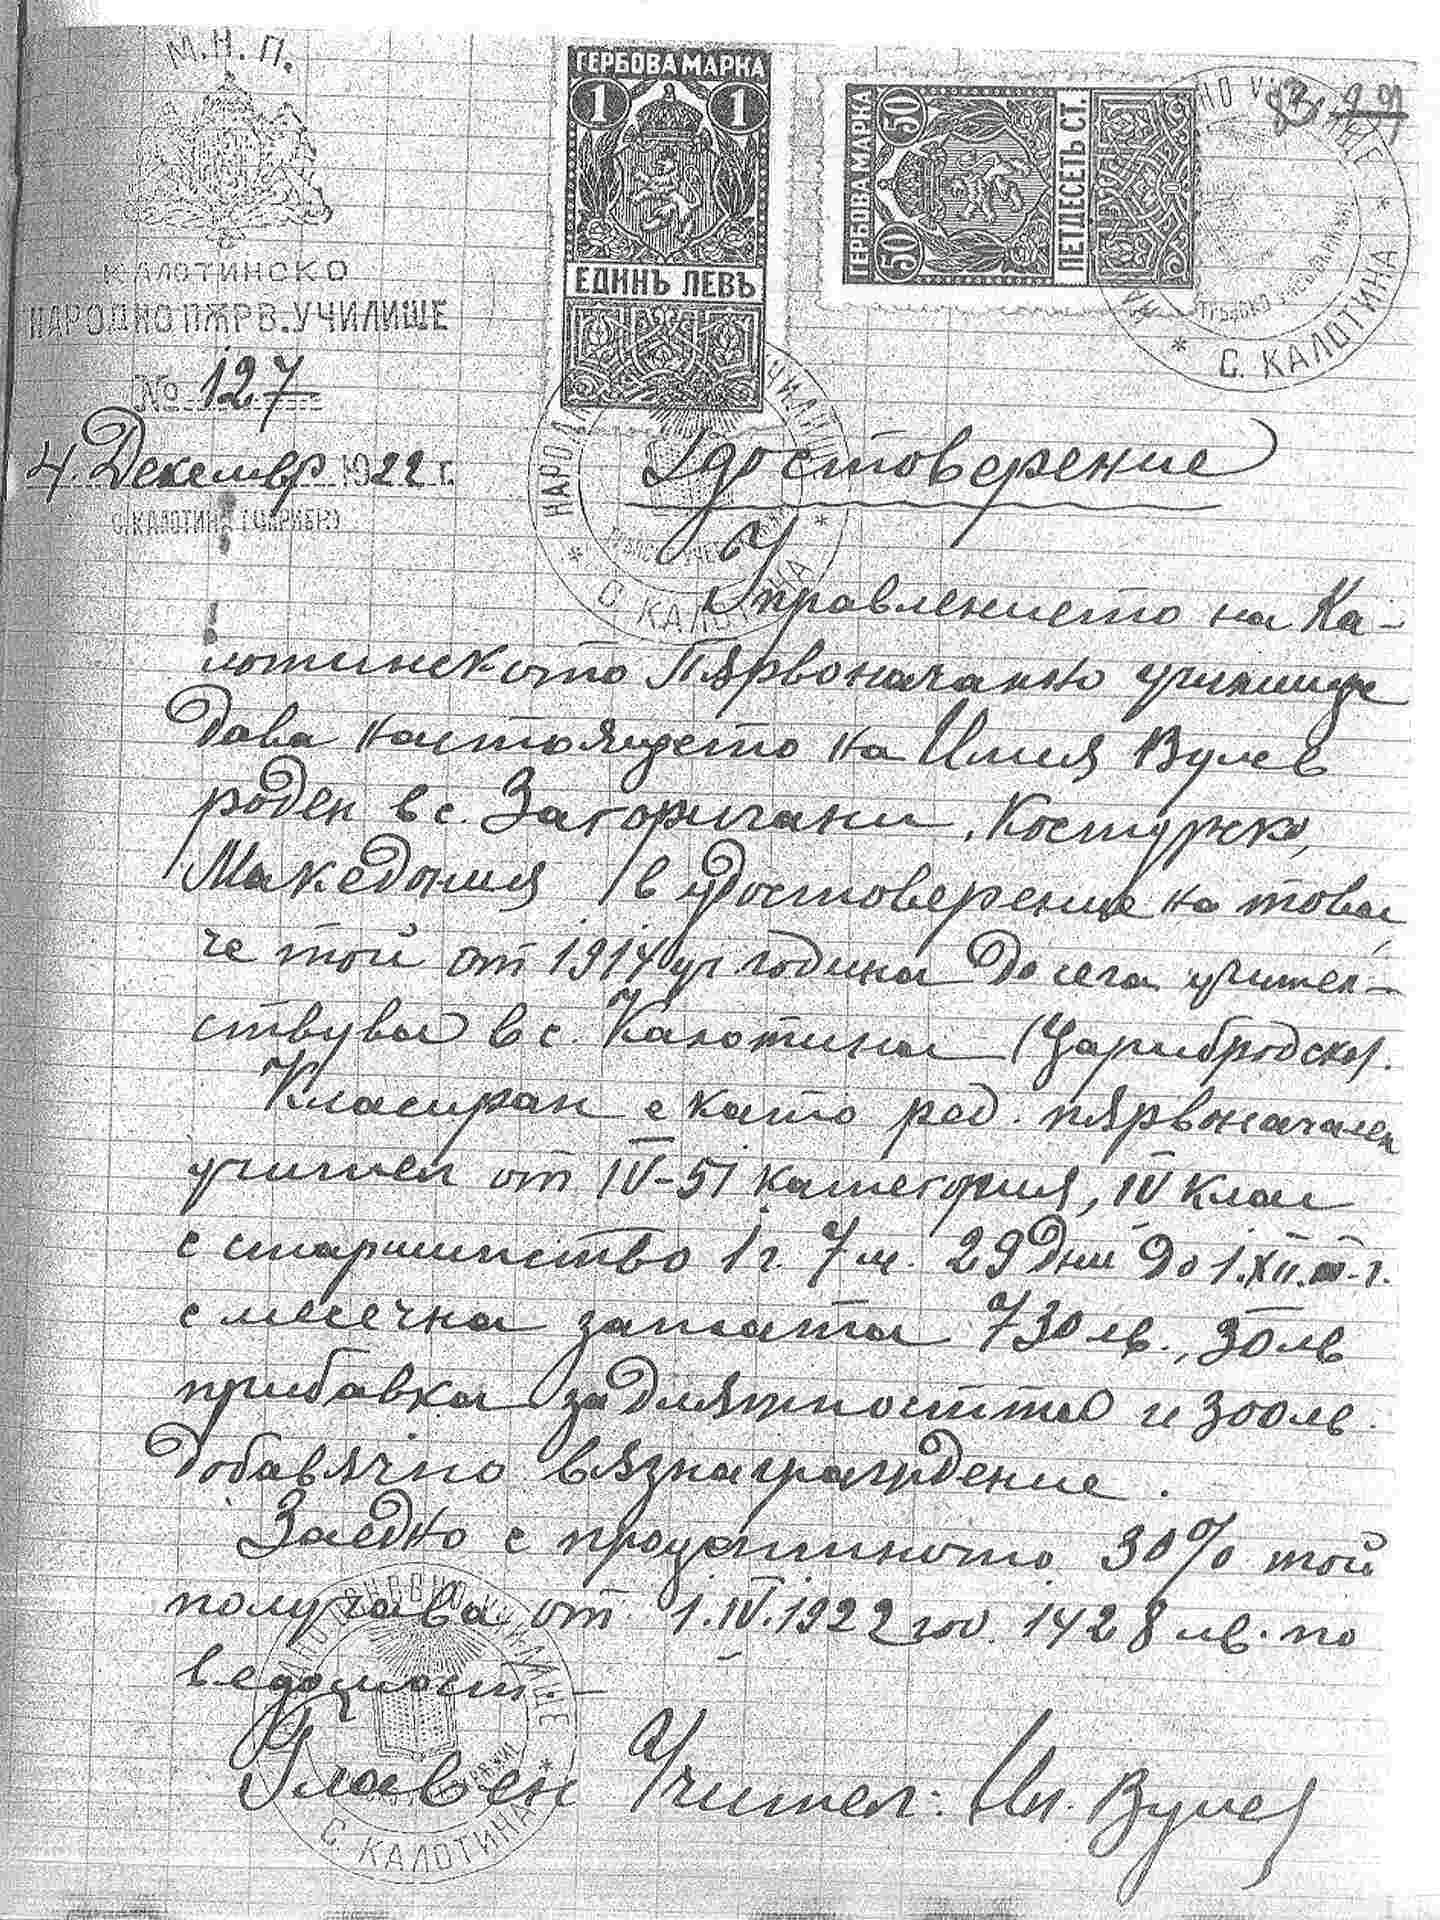 М.Н.П.
КАЛОТИНСКО
НАРОДНО ПѪРВ. УЧИЛИЩЕ
№ 127
4. Декемвр 1922 г.
С. КАЛОТИНА (ЦАРИБР.)
ГЕРБОВА МАРКА
1 1
ЕДИНЪ ЛЕВЪ
ГЕРБОВА МАРКА
50 50
ПЕТДЕСЕТЬ СТ.
* С. КАЛОТИНА *
* С. КАЛОТИНА *
Удостоверение
Управлението на Ка-
лотинското Пѫрвоначално училище
дава настоящето на Илия Вулев
роден в с. Загоричани, Костурско,
Македония в удостоверение на това,
че той от 1914 уч година до сега учител-
ствува в с. Калотина (Царибродско).
Класиран е като ред. пѫрвоначален
учител от IV-5т категория, IV клас
с старшинство 1 г. 7 м. 29 дни до 1.XII.т.г.
с месечна заплата 730 лв., 30 лв
прибавка за длѫжността и 300 лв.
добавѫчно вѫзнаграждение.
Заедно с процентното 30% той
получава от 1.IV.1922 год. 1428 лв. по
ведомост –
Главен Учител: Ил. Вулев
С. КАЛОТИНА *